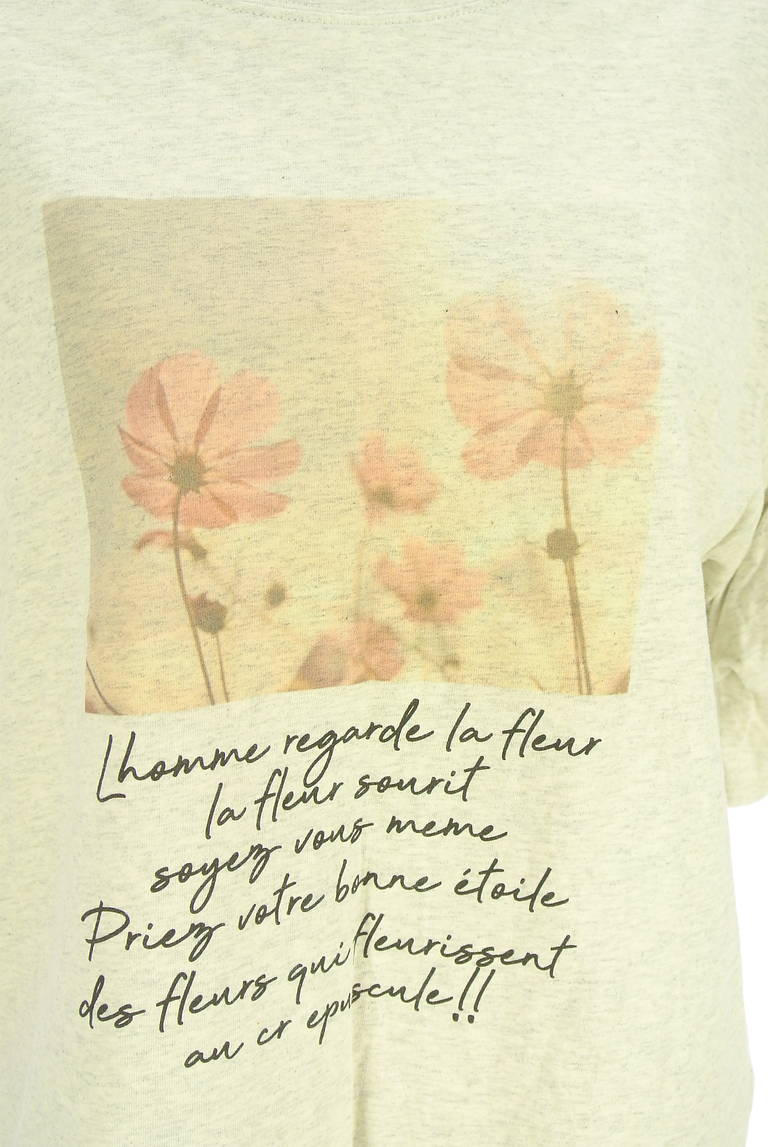 Lhomme regarde la fleur
la fleur sourit
soyez vous meme
Priez votre bonne étoile
des fleurs qui fleurissent
au cr epuscule!!